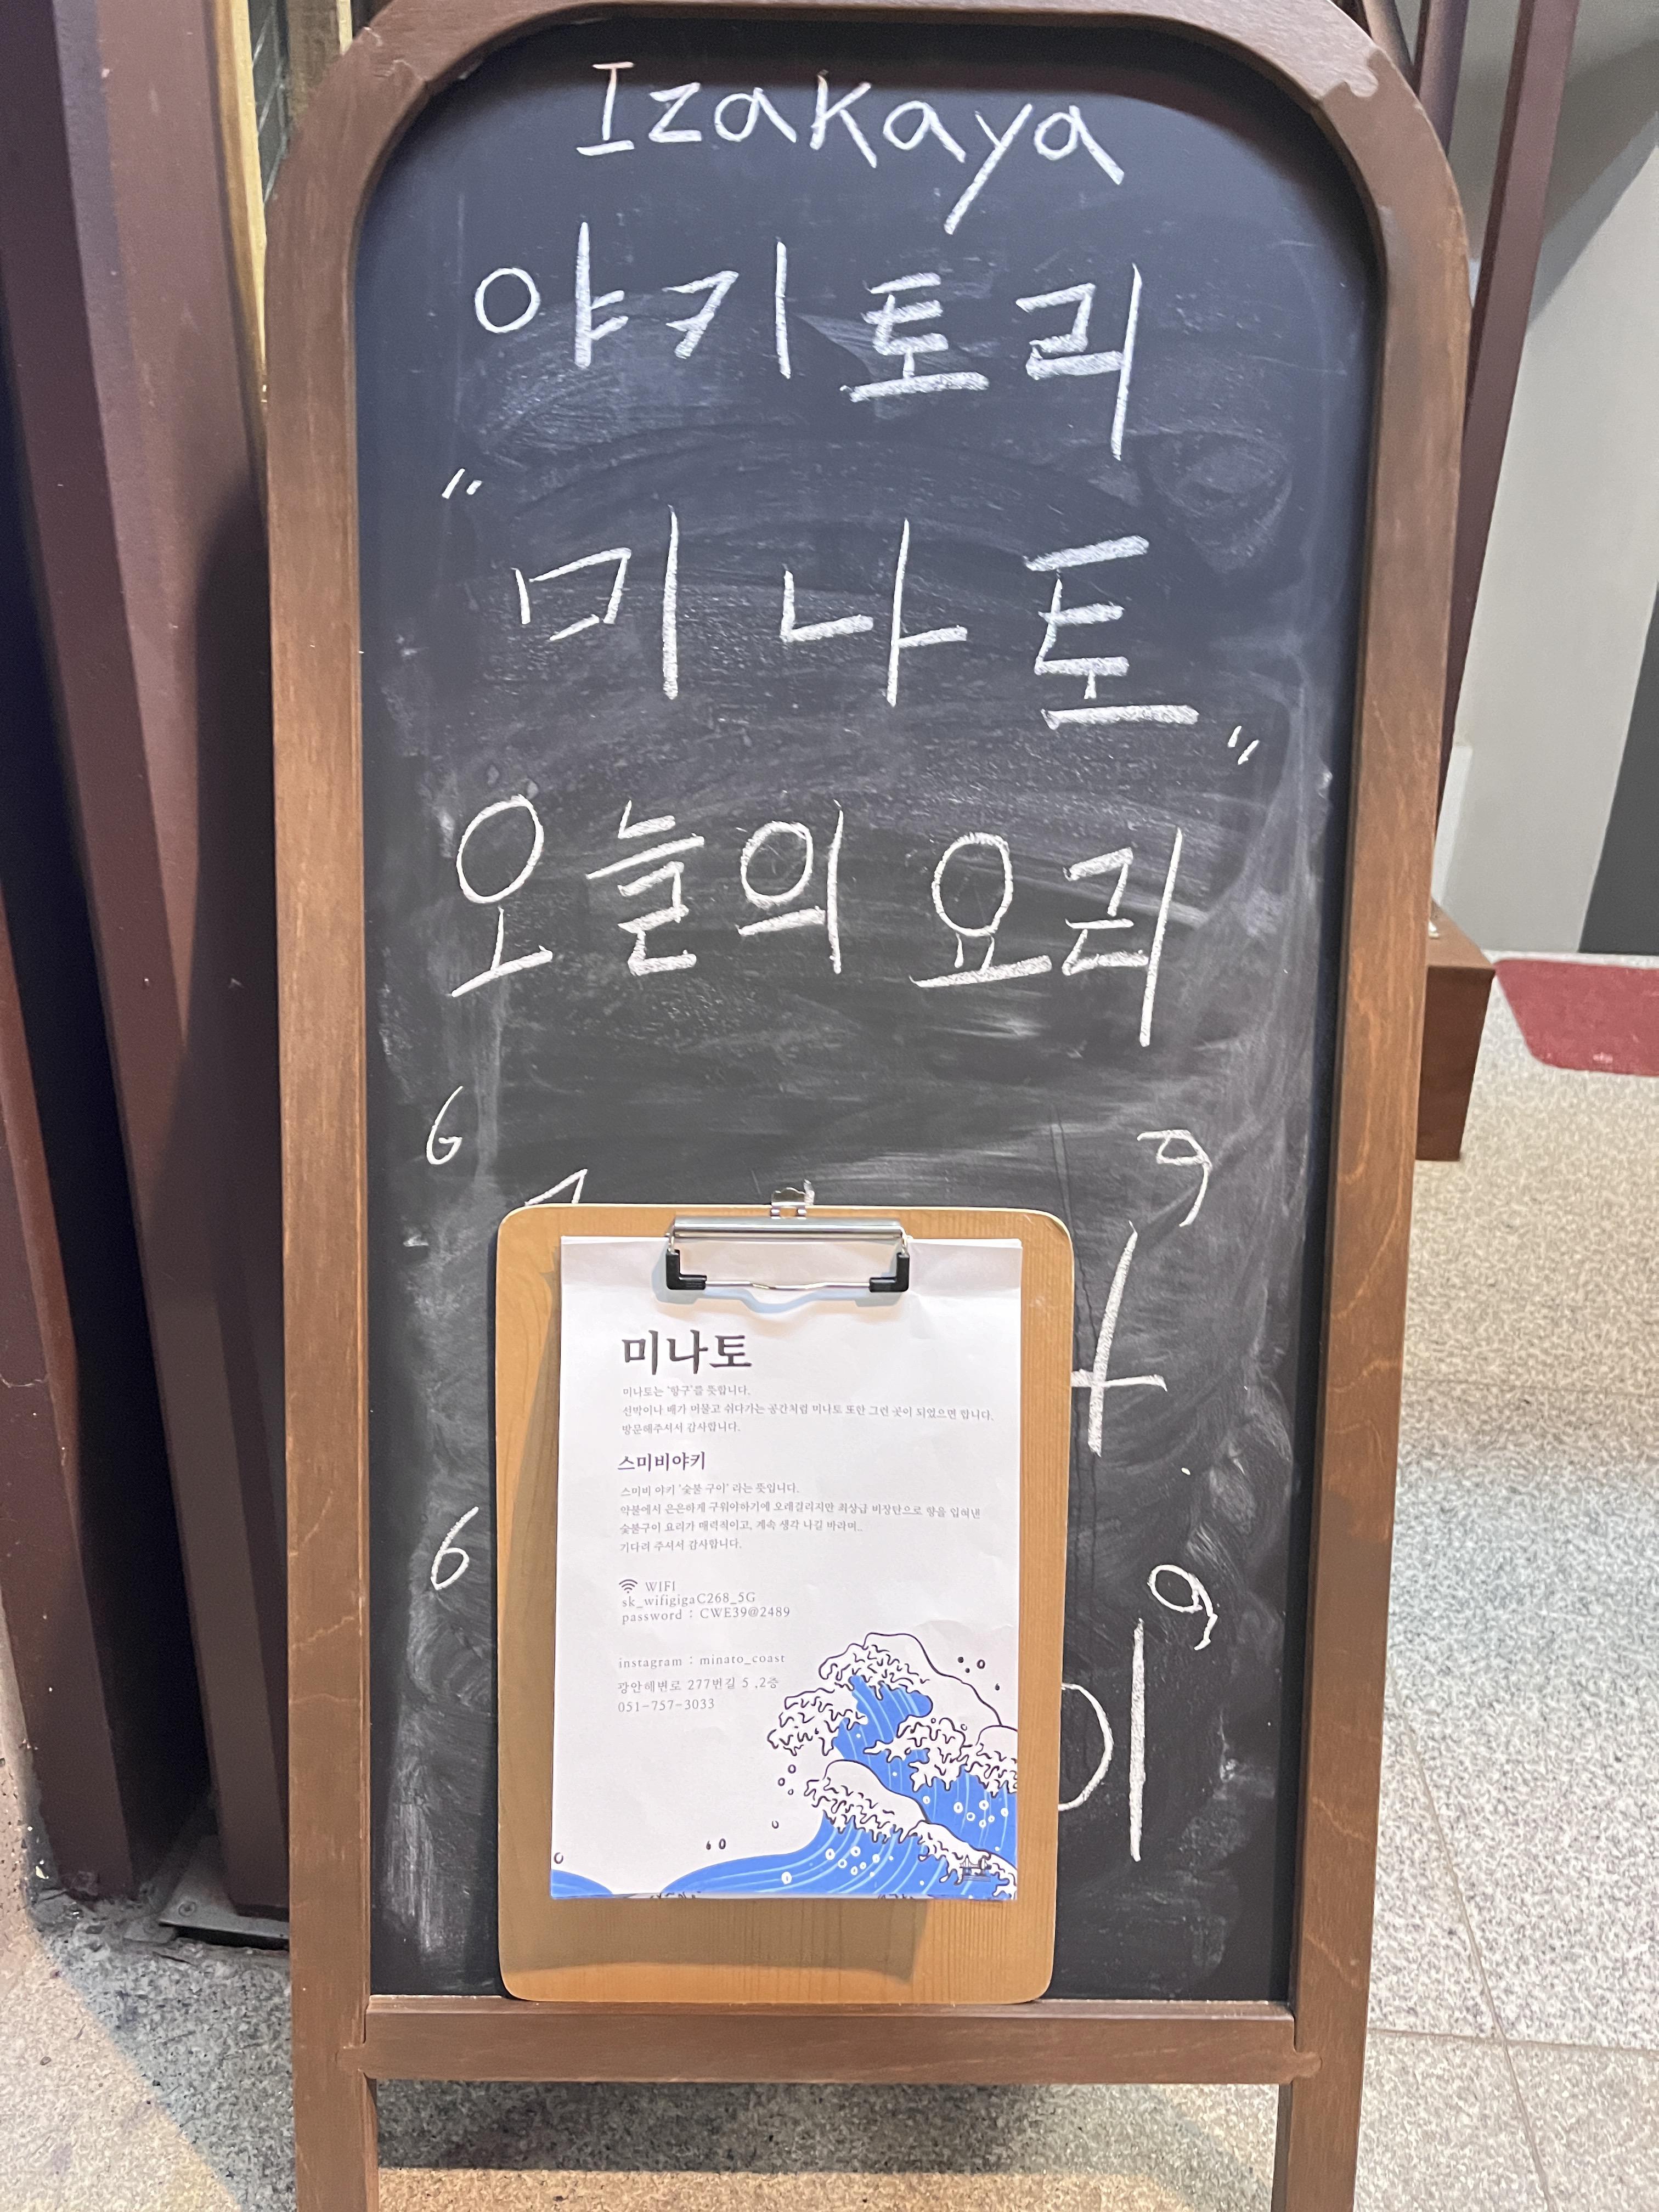 Izakaya
야키토리
"미나토"
오늘의 요리
미나토
미나토는 '항구'를 뜻합니다.
선박이나 배가 머물고 쉬다가는 공간처럼 미나토 또한 그런 곳이 되었으면 합니다.
방문해주셔서 감사합니다.
스미비야키
스미비 야키 '숯불 구이' 라는 뜻입니다.
약불에서 은은하게 구워야하기에 오래걸리지만 최상급 비장탄으로 향을 입혀낸
숯불구이 요리가 매력적이고, 계속 생각 나길 바라며..
기다려 주셔서 감사합니다.
WIFI
sk_wifigigaC268_5G
password : CWE39@2489
instagram : minato_coast
광안해변로 277번길 5 ,2층
051-757-3033